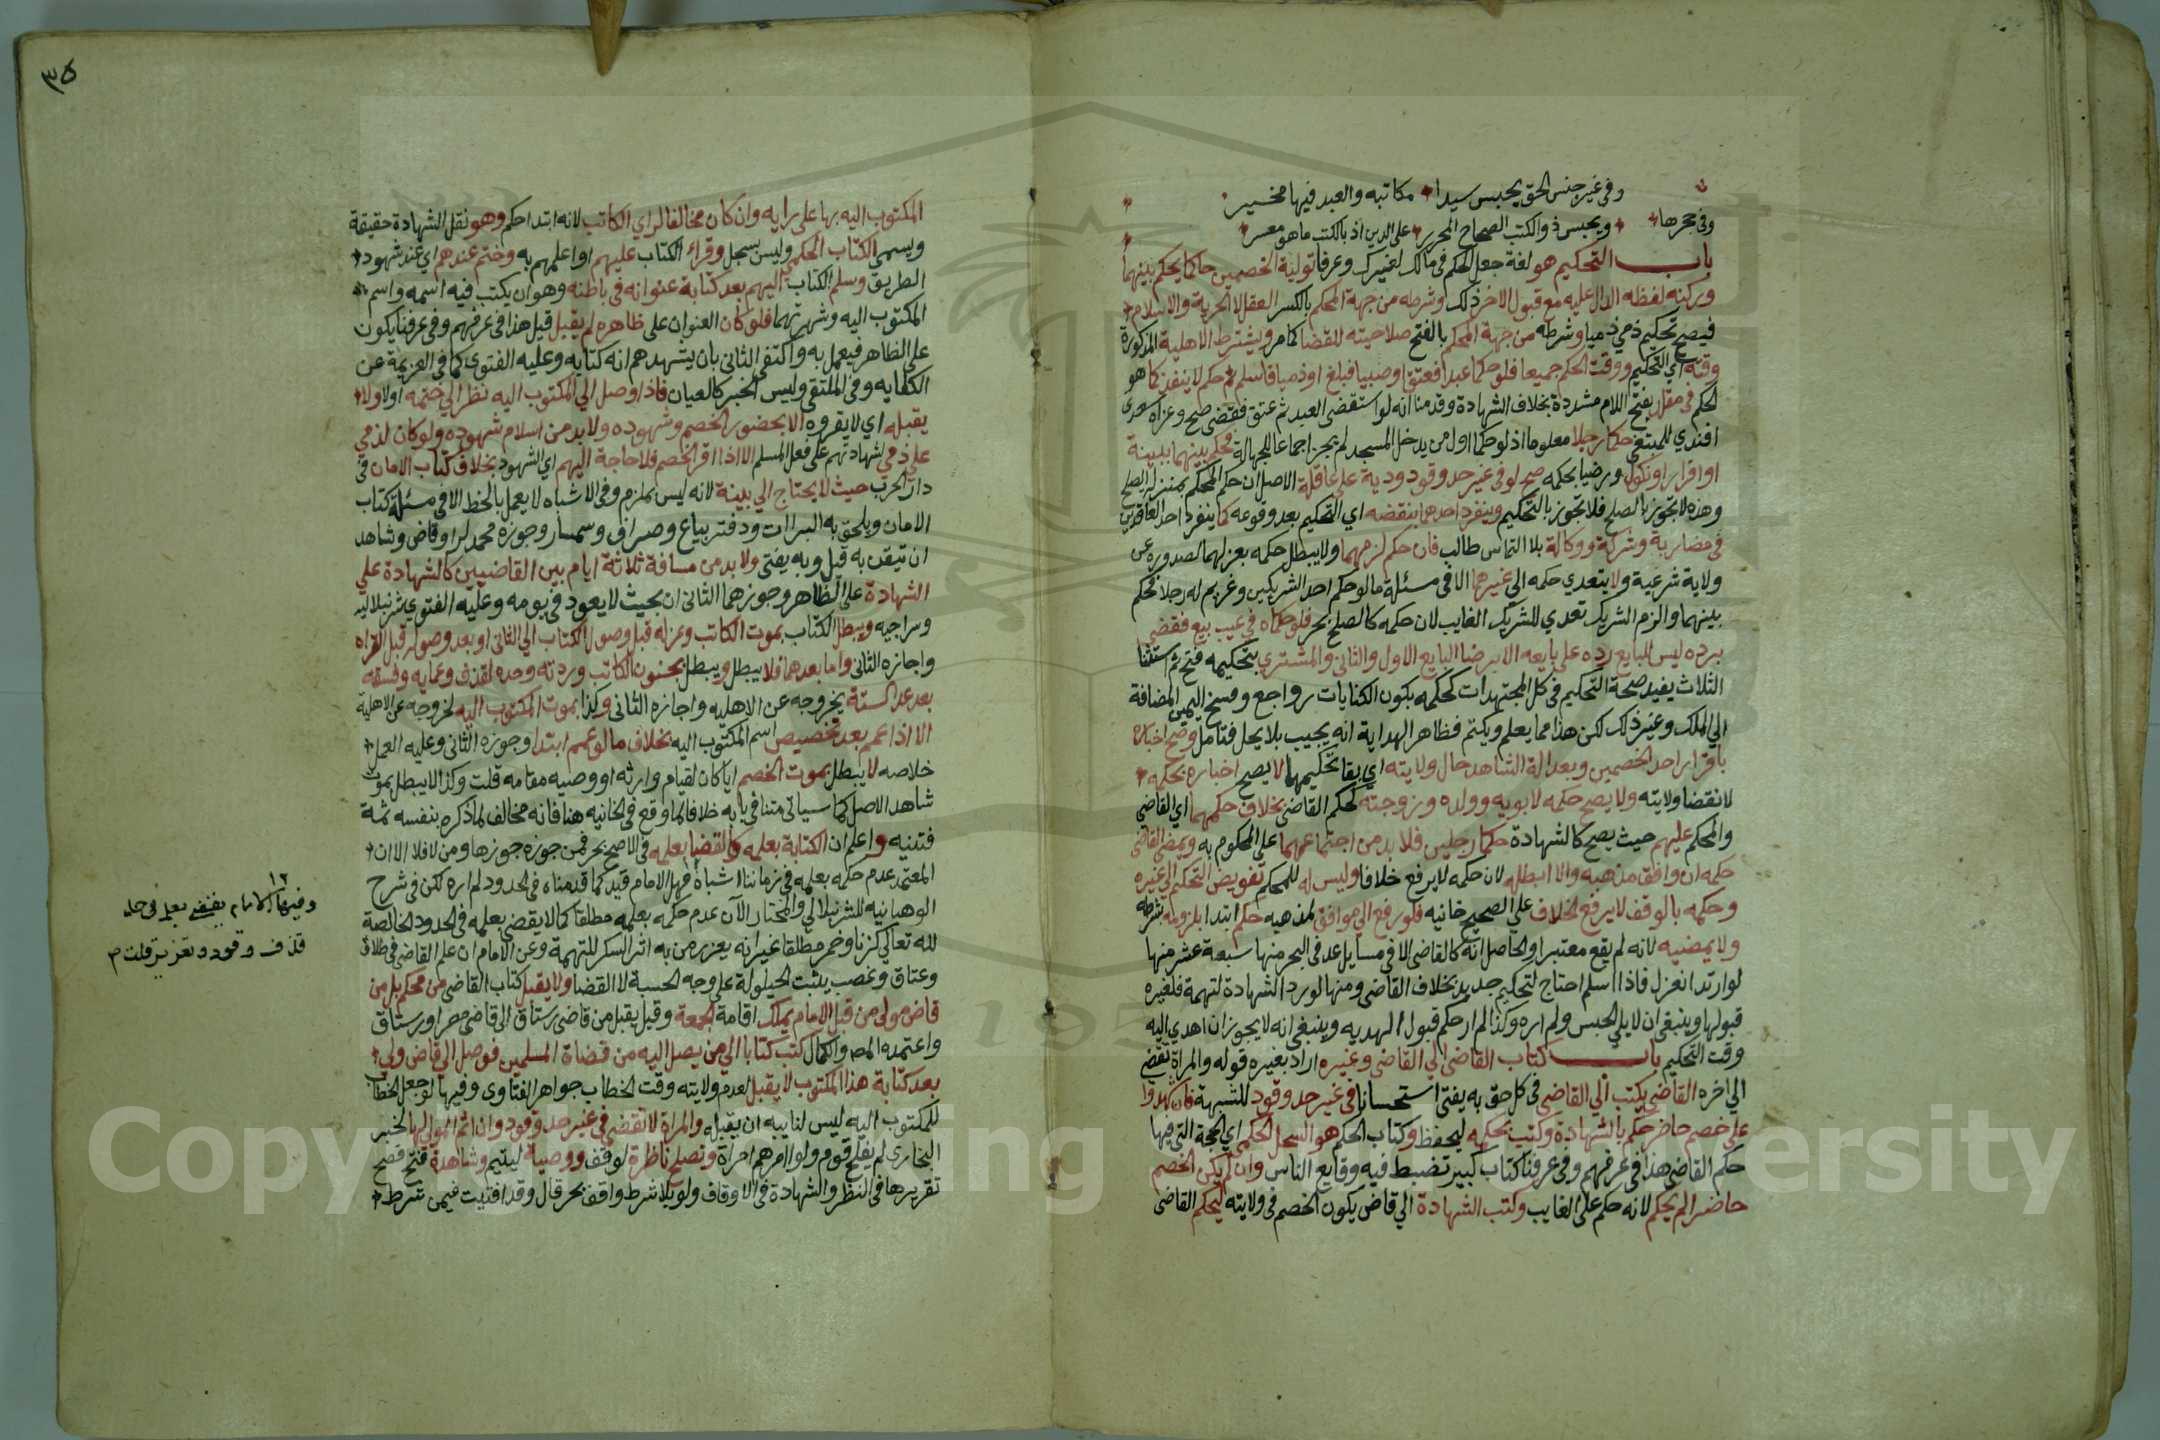 وفي غير جنس الحق يحبس سيدا مكاتبه والعبد فيها مخير
وفي حجرها ويحبس ذو الكتب الصحاح المحرر على الدين اذ بالكتب ما هو معسر
باب التحكيم هو لغة جعل الحكم في مالك لغيرك وعرفا تولية الخصمين حاكما يحكم بينهما
وركنه لفظه الدال عليه مع قبول الاخر ذلك وشرطه من جهة المحكم بالكسر العقل لا الحرية والاسلام
فيصح تحكيم ذمي ذميا وشرطه من جهة المحكم بالفتح صلاحيته للقضا كما مر ويشترط الاهلية المذكورة
وقته اي التحكيم ووقت الحكم جميعا فلو حكما عبدا فعتق او صبيا فبلغ او ذميا فاسلم ثم حكم لا ينفذ كما هو
الحكم في مقلد بفتح اللام مشددة بخلاف الشهادة وقدمنا انه لو استقضى العبد ثم عتق فقضى صح وعزاه سعدى
افندي للمبتغى حكما رجلا معلوما اذ لو حكما اول من يدخل المسجد لم يجز اجماعا للجهالة فحكم بينهما ببينة
او اقرار او نكول ورضيا بحكمه صح لو في غير حد وقود ودية على عاقلة الاصل ان حكم المحكم بمنزلة الصلح
وهذه لا تجوز بالصلح فلا تجوز بالتحكيم وينفرد احدهما بنقضه اي التحكيم بعد وقوعه كما ينفرد احد العاقدين
في مضاربة وشركة ووكالة بلا التماس طالب فان حكم لزمهما ولا يبطل حكمه بعزلهما لصدوره عن
ولاية شرعية ولا يتعدي حكمه الي غيرهما الا في مسئلة ما لو حكم احد الشريكين وغريم له رجلا فحكم
بينهما والزم الشريك تعدي للشريك الغايب لان حكمه كالصلح بحر فلو حكماه في عيب بيع فقضى
برده ليس للبايع رده على بايعه الا برضا البايع الاول والثاني والمشتري بتحكيمه فتح ثم استثنا
الثلاث يفيد صحة التحكيم في كل المجتهدات كحكمه بكون الكنايات رواجع وفسخ اليمين المضافة
الي الملك وغير ذلك لكن هذا مما يعلم ويكتم فظاهر الهداية انه يجيب بلا يحل فتامل وصح اخباره
باقرار احد الخصمين وبعدالة الشاهد حال ولايته اي بقا تحكيمهما لا يصح اخباره بحكمه
لانقضا ولايته ولا يصح حكمه لابويه وولده وزوجته كحكم القاضي بخلاف حكمهما اي القاضي
والمحكم عليهم حيث يصح كالشهادة حكما رجلين فلا بد من اجتماعهما على المحكوم به ويمضي القاضى
حكمه ان وافق مذهبه والا ابطله لان حكمه لا يرفع خلافا وليس له للمحكم تفويض التحكيم الي غيره
وحكمه بالوقف لا يرفع الخلاف علي الصحيح خانيه فلو رفع الي موافق لمذهبه حكم ابتدا بلزومه بشرطه
ولا يمضيه لانه لم يقع معتبرا والحاصل انه كالقاضي الا في مسايل عد في البحر منها سبعة عشر منها
لو ارتد انعزل فاذا اسلم احتاج لتحكيم جديد بخلاف القاضي ومنها لو رد الشهادة لتهمة فلغيره
قبولها وينبغي ان لا يلي الحبس ولم اره وكذا لم ار حكم قبول الهديه وينبغي انه لا يجوز ان اهدي اليه
وقت التحكيم باب كتاب القاضي الي القاضي وغيره اراد بغيره قوله والمراة تقضي
الي اخره القاضي يكتب الي القاضي في كل حق به يفتى استحسانا في غير حد وقود للشبهة فان شهدوا
على خصم حاضر حكم بالشهادة وكتب بحكمه ليحفظ وكتاب الحكم هو السجل الحكمي اي الحجة التي فيها
حكم القاضي هذا في عرفهم وفي عرفنا كتاب كبير تضبط فيه وقايع الناس وان لم يكن الخصم
حاضرا لم يحكم لانه حكم على الغايب وكتب الشهادة الي قاض يكون الخصم في ولايته ليحكم القاضي
٣٥
المكتوب اليه بها على رايه وان كان مخالفا لراي الكاتب لانه ابتدا حكم وهو نقل الشهادة حقيقة
ويسمى الكتاب الحكمي وليس بسجل وقراء الكتاب عليهم او اعلمهم به وختم عندهم اي عند شهود
الطريق وسلم الكتاب اليهم بعد كتابة عنوانه في باطنه وهو ان يكتب فيه اسمه واسم
المكتوب اليه وشهرتهما فلو كان العنوان على ظاهره لم يقبل قيل هذا في عرفهم وفي عرفنا يكون
على الظاهر فيعمل به واكتفى الثاني بان يشهدهم انه كتابه وعليه الفتوى كما في العزيمة عن
الكفايه وفي الملتقى وليس الخبر كالعيان فاذا وصل الي المكتوب اليه نظر الي ختمه اولا ولا
يقبله اي لا يقروه الا بحضور الخصم وشهوده ولا بد من اسلام شهوده ولو كان لذمي
على ذمي لشهادتهم على فعل المسلم الا اذا اقر الخصم فلا حاجة اليهم اي الشهود بخلاف كتاب الامان في
دار الحرب حيث لا يحتاج الي بينة لانه ليس بملزم وفي الاشباه لا يعمل بالخط الا في مسئلة كتاب
الامان ويلحق به البراات ودفتر بياع وصراف وسمسار وجوزه محمد لراو وقاض وشاهد
ان تيقن به قيل وبه يفتى ولا بد من مسافة ثلاثة ايام بين القاضيين كالشهادة علي
الشهادة على الظاهر وجوزهما الثاني ان بحيث لا يعود في يومه وعليه الفتوى شرنبلاليه
وسراجيه ويبطل الكتاب بموت الكاتب وعزله قبل وصول الكتاب الي الثاني او بعد وصوله قبل القراه
واجازه الثاني واما بعدهما فلا يبطل ويبطل بجنون الكاتب وردته وحده لقذف وعمايه وفسقه
بعد عدالته بخروجه عن الاهليه واجازه الثاني وكذا بموت المكتوب اليه لخروجه عن الاهلية
الا اذا عمم بعد تخصيص اسم المكتوب اليه بخلاف ما لو عمم ابتدا وجوزه الثاني وعليه العمل
خلاصه لا يبطل بموت الخصم ايا كان لقيام وارثه او وصيه مقامه قلت وكذا لا يبطل بموت
شاهد الاصل كما سياتي متنا في بابه خلافا لما وقع في الخانيه هنا فانه مخالف لما ذكره بنفسه ثمة
فتنبه واعلم ان الكتابة بعلمه كالقضا بعلمه في الاصح بحر فمن جوزه جوزها ومن لا فلا الا ان
المعتمد عدم حكمه بعلمه في زماننا اشباه فهل الامام قيد كما قدمناه في الحدود لم اره لكن في شرح
الوهبانيه للشرنبلالي والمختار الآن عدم حكمه بعلمه مطلقا كما لا يقضي بعلمه في الحدود الخالصة
لله تعالي كزنا وخمر مطلقا غير انه يعزر من به اثر السكر للتهمة وعن الامام ان علم القاضي في طلاق
وعتاق وغصب يثبت الحيلولة على وجه الحسبة لا القضا ولا يقبل كتاب القاضي من محكم بل من
قاض مولى من قبل الامام يملك اقامة الجمعة وقيل يقبل من قاضي رستاق الي قاضي مصر او رستاق
واعتمده المص والكمال كتب كتابا الي من يصل اليه من قضاة المسلمين فوصل الي قاض ولي
بعد كتابة هذا المكتوب لا يقبل لعدم ولايته وقت الخطاب جواهر الفتاوى وفيها لو جعل الخطاب
للمكتوب اليه ليس لنايبه ان يقبله والمراة تقضي في غير حد وقود وان اثم المولي لها لخبر
البخاري لم يفلح قوم ولوا امرهم امراة وتصلح ناظرة لوقف ووصية ليتيم وشاهدة فتح فصح
تقريرها في النظر والشهادة في الاوقاف ولو بلا شرط واقف بحر قال وقد افتيت فيمن شرط
وفيها الامام يقضي بعلمه في حد
قذف وقود وتعزير قلت م
Copy King University